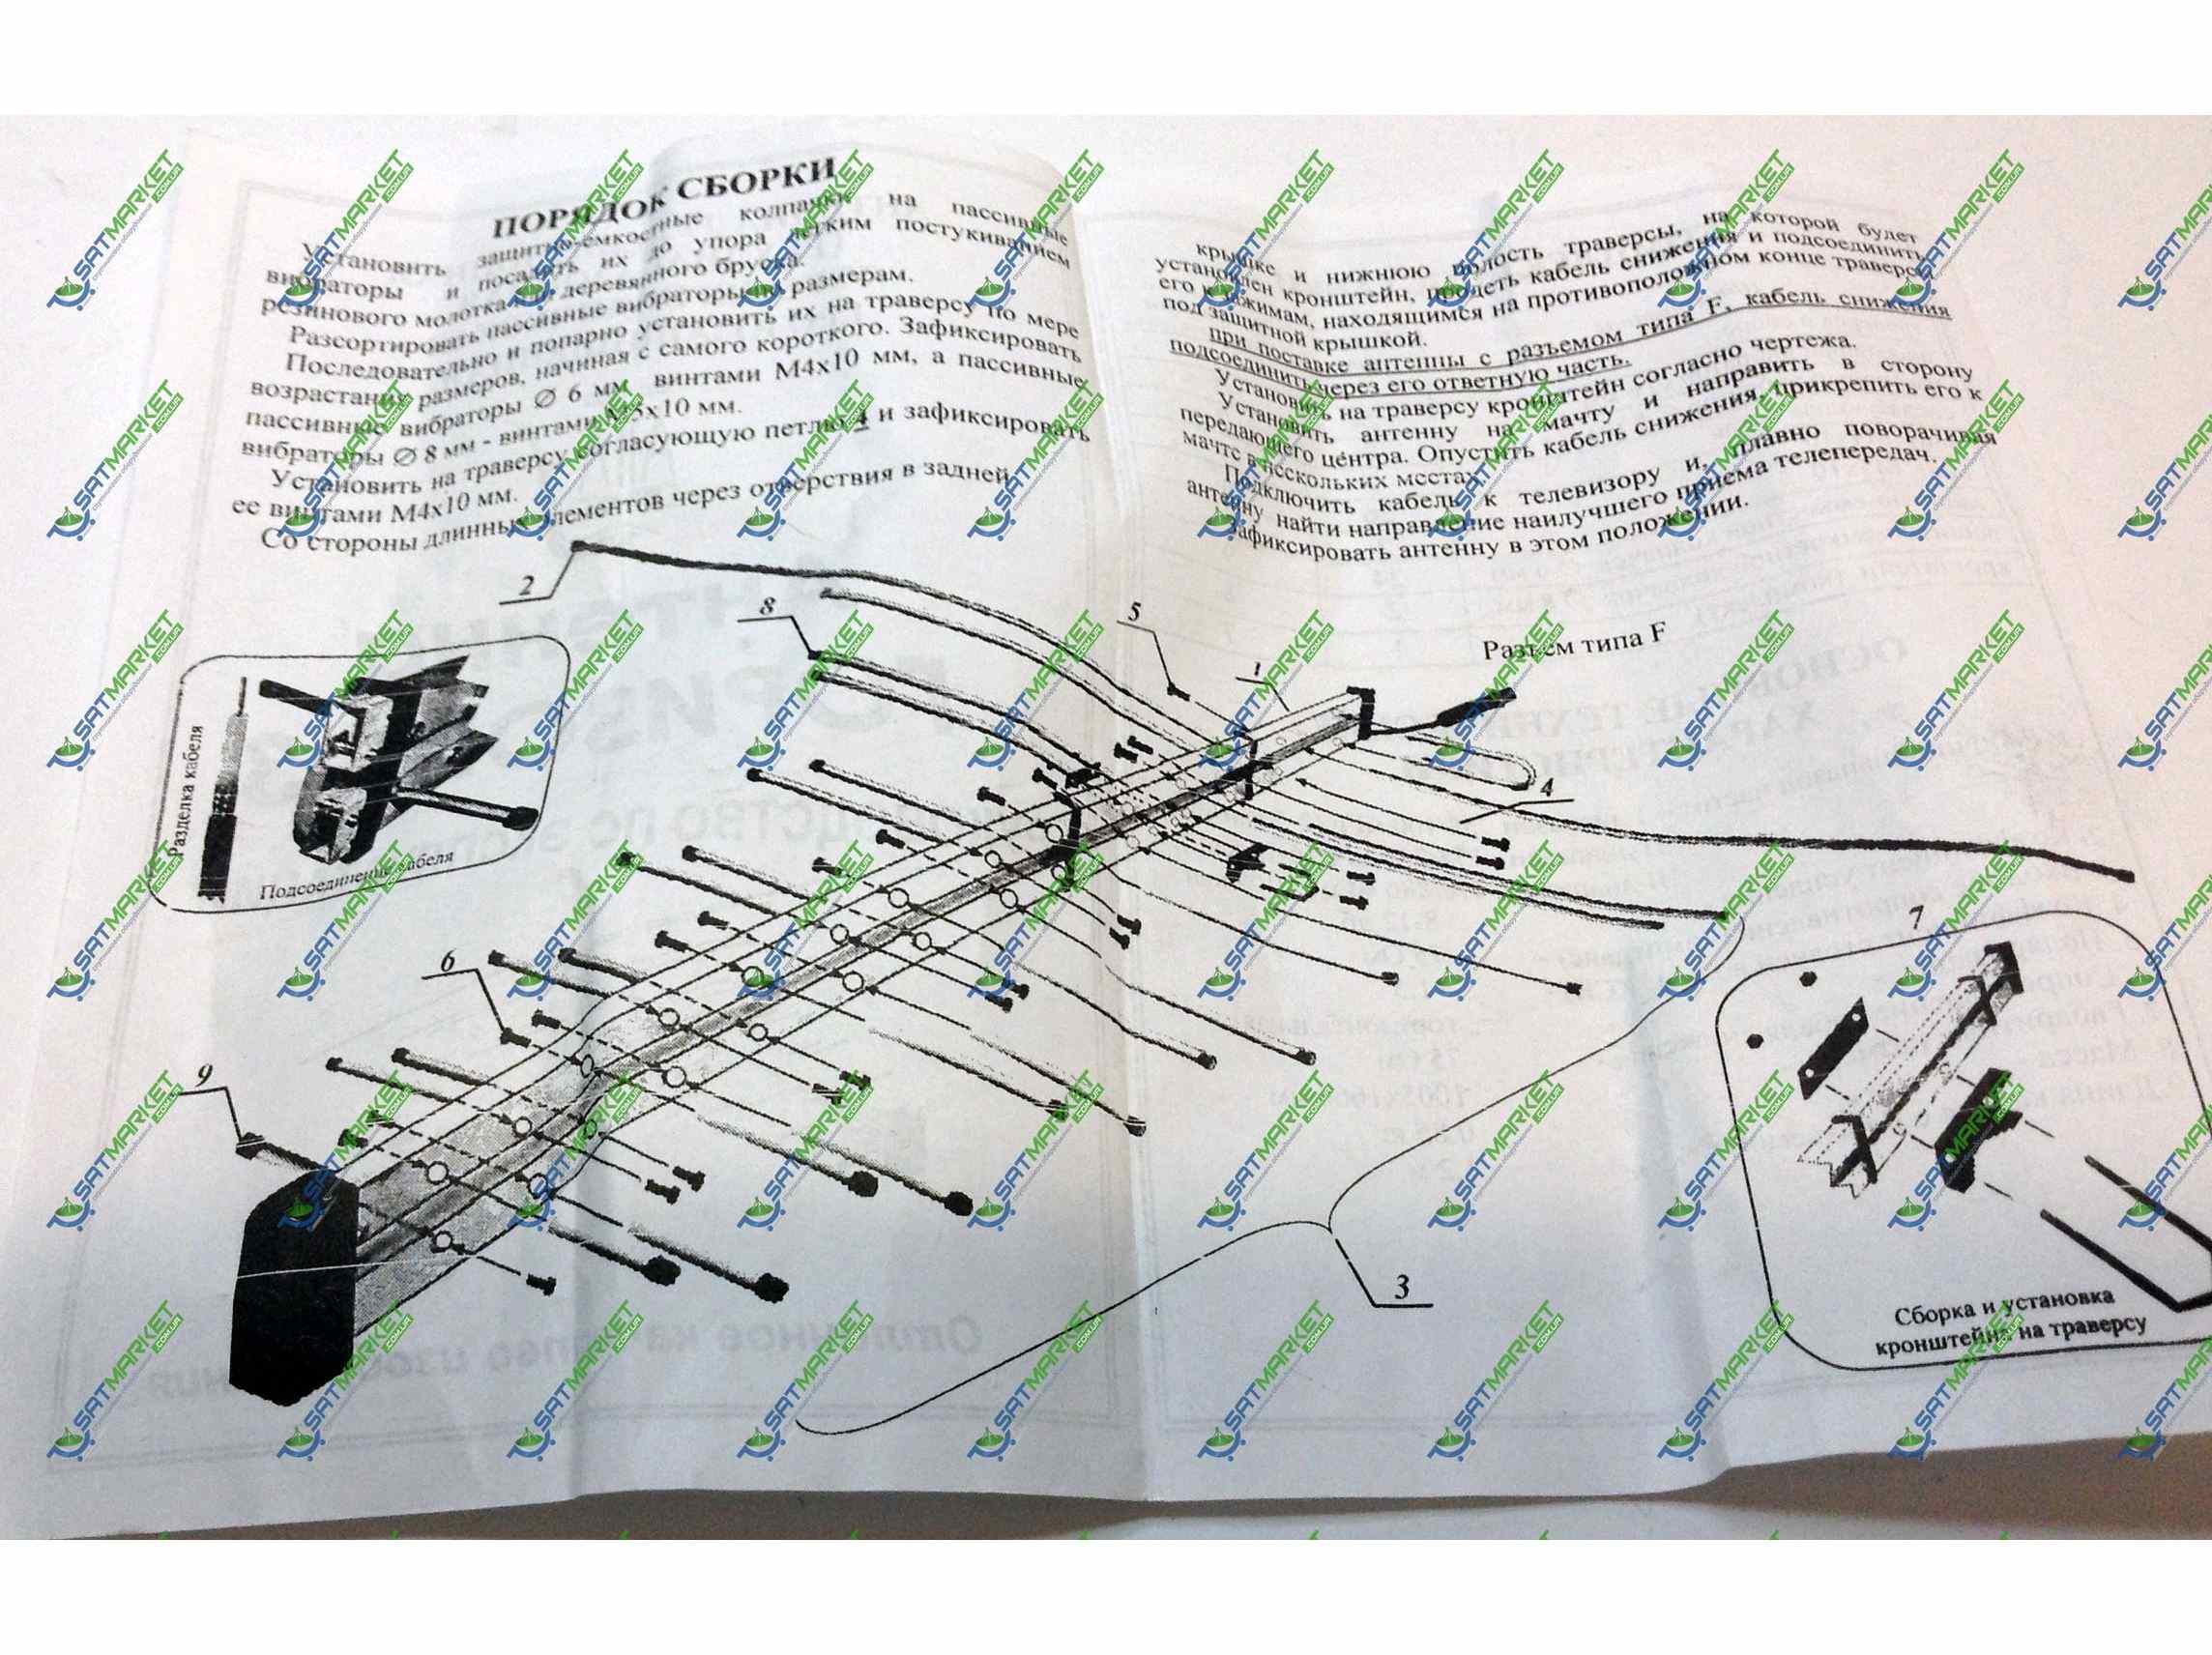 ПОРЯДОК СБОРКИ
Установить защитно-емкостные колпачки на пассивные
вибраторы и посадить их до упора легким постукиванием
резинового молотка или деревянного бруска.
Разсортировать пассивные вибраторы по размерам.
Последовательно и попарно установить их на траверсу по мере
возрастания размеров, начиная с самого короткого. Зафиксировать
пассивные вибраторы ∅ 6 мм винтами М4х10 мм, а пассивные
вибраторы ∅ 8 мм - винтами М5х10 мм.
Установить на траверсу согласующую петлю 4 и зафиксировать
ее винтами М4х10 мм.
Со стороны длинных элементов через отверствия в задней
крышке и нижнюю полость траверсы, на которой будет
установлен кронштейн, продеть кабель снижения и подсоединить
его к зажимам, находящимся на противоположном конце траверсы
под защитной крышкой.
при поставке антенны с разъемом типа F, кабель снижения
подсоединить через его ответную часть.
Установить на траверсу кронштейн согласно чертежа.
Установить антенну на мачту и направить в сторону
передающего центра. Опустить кабель снижения, прикрепить его к
мачте в нескольких местах.
Подключить кабель к телевизору и, плавно поворачивая
антенну найти направление наилучшего приема телепередач.
Зафиксировать антенну в этом положении.
2
8
5
1
Разъем типа F
4
Разделка кабеля
Подсоединение кабеля
6
9
7
3
Сборка и установка
кронштейна на траверсу
SATMARKET
.COM.UA